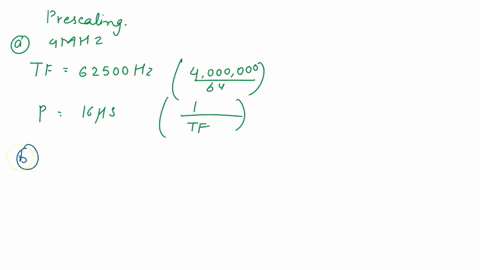 Prescaling.
(a) 4MHz
TF = 62500 Hz ( 4,000,000 / 64 )
P = 16μs ( 1 / TF )
(b)